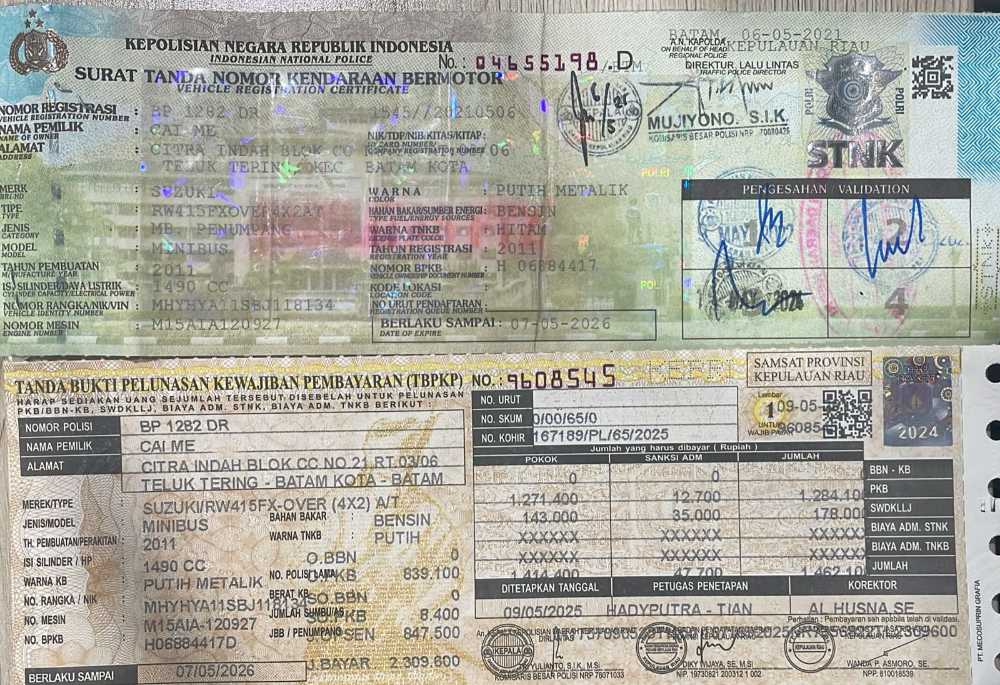 KEPOLISIAN NEGARA REPUBLIK INDONESIA
INDONESIAN NATIONAL POLICE
SURAT TANDA NOMOR KENDARAAN BERMOTOR
VEHICLE REGISTRATION CERTIFICATE
No.: 04655198 .D
BATAM 06-05-2021
A.N. KAPOLDA KEPULAUAN RIAU
ON BEHALF OF HEAD
REGIONAL POLICE
DIREKTUR LALU LINTAS
TRAFFIC POLICE DIRECTOR
MUJIYONO. S.I.K.
KOMISARIS BESAR POLISI NRP
POLRI
POLRI
STNK
NOMOR REGISTRASI : BP 1282 DR 1545//20210506
VEHICLE REGISTRATION NUMBER
NAMA PEMILIK : CAI ME
NAME OF OWNER
NIK/TDP/NIB/KITAS/KITAP:
ID CARD NUMBER
COMPANY REGISTRATION NUMBER
ALAMAT : CITRA INDAH BLOK CC 06
ADDRESS
TELUK TERING KEC BATAM KOTA
MERK : SUZUKI
TIPE : RW415FXOVER4X2AT
TYPE
JENIS : MB. PENUMPANG
CATEGORY
MODEL : MINIBUS
MODEL
TAHUN PEMBUATAN : 2011
MANUFACTURE YEAR
ISI SILINDER/DAYA LISTRIK : 1490 CC
CYLINDER CAPACITY/ELECTRICAL POWER
NOMOR RANGKA/NIK/VIN : MHYHYA11SBJ118134
VEHICLE IDENTITY NUMBER
NOMOR MESIN : M15AIA120927
ENGINE NUMBER
WARNA : PUTIH METALIK
COLOR
BAHAN BAKAR/SUMBER ENERGI : BENSIN
TYPE FUEL/ENERGY SOURCES
WARNA TNKB : HITAM
LICENSE PLATE COLOR
TAHUN REGISTRASI : 2011
REGISTRATION YEAR
NOMOR BPKB : H 06884417
VEHICLE OWNERSHIP DOCUMENT NUMBER
KODE LOKASI :
LOCATION CODE
NO URUT PENDAFTARAN :
REGISTRATION QUEUE NUMBER
BERLAKU SAMPAI : 07-05-2026
DATE OF EXPIRE
PENGESAHAN / VALIDATION
1
2
4
TANDA BUKTI PELUNASAN KEWAJIBAN PEMBAYARAN (TBPKP) NO. : 9608545
HARAP SEDIAKAN UANG SEJUMLAH TERSEBUT DISEBELAH UNTUK PELUNASAN
PKB/BBN-KB, SWDKLLJ, BIAYA ADM. STNK, BIAYA ADM. TNKB BERIKUT :
SAMSAT PROVINSI
KEPULAUAN RIAU
Lembar
1
UNTUK
WAJIB PAJAK
2024
NOMOR POLISI BP 1282 DR
NAMA PEMILIK CAI ME
ALAMAT CITRA INDAH BLOK CC NO 21 RT.03/06
TELUK TERING - BATAM KOTA - BATAM
MEREK/TYPE : SUZUKI/RW415FX-OVER (4X2) A/T
JENIS/MODEL : MINIBUS
TH. PEMBUATAN/PERAKITAN : 2011
ISI SILINDER / HP : 1490 CC
WARNA KB : PUTIH METALIK
NO. RANGKA / NIK : MHYHYA11SBJ118134
NO. MESIN : M15AIA-120927
NO. BPKB : H06884417D
BAHAN BAKAR : BENSIN
WARNA TNKB : PUTIH
O.BBN 0
NO. POLISI LAMA
PKB 839.100
BERAT KB
SO.BBN 0
JUMLAH SUMBU/AS
SO.PKB 8.400
JBB / PENUMPANG
SEN 847.500
J.BAYAR 2.309.600
BERLAKU SAMPAI 07/05/2026
NO. URUT
NO. SKUM 0/00/65/0
NO. KOHIR 167189/PL/65/2025
Jumlah yang harus dibayar ( Rupiah )
POKOK SANKSI ADM JUMLAH
0 0 BBN - KB
1.271.400 12.700 1.284.100 PKB
143.000 35.000 178.000 SWDKLLJ
XXXXXX XXXXXX XXXXXX BIAYA ADM. STNK
XXXXXX XXXXXX XXXXXX BIAYA ADM. TNKB
1.414.400 47.700 1.462.100 JUMLAH
DITETAPKAN TANGGAL PETUGAS PENETAPAN KOREKTOR
09/05/2025 HADYPUTRA - TIAN AL HUSNA,SE
Perhatian : Pembayaran sah apabila telah di validasi.
YULIANTO, S.I.K, M.Si
KOMISARIS BESAR POLISI NRP 76071033
DIKY WIJAYA, SE, M.SI
NIP. 19730821 200312 1 002
WANDA P. ASMORO, SE.
NPP. 810018539
PT. MEDOSUPRIN GRAFIA